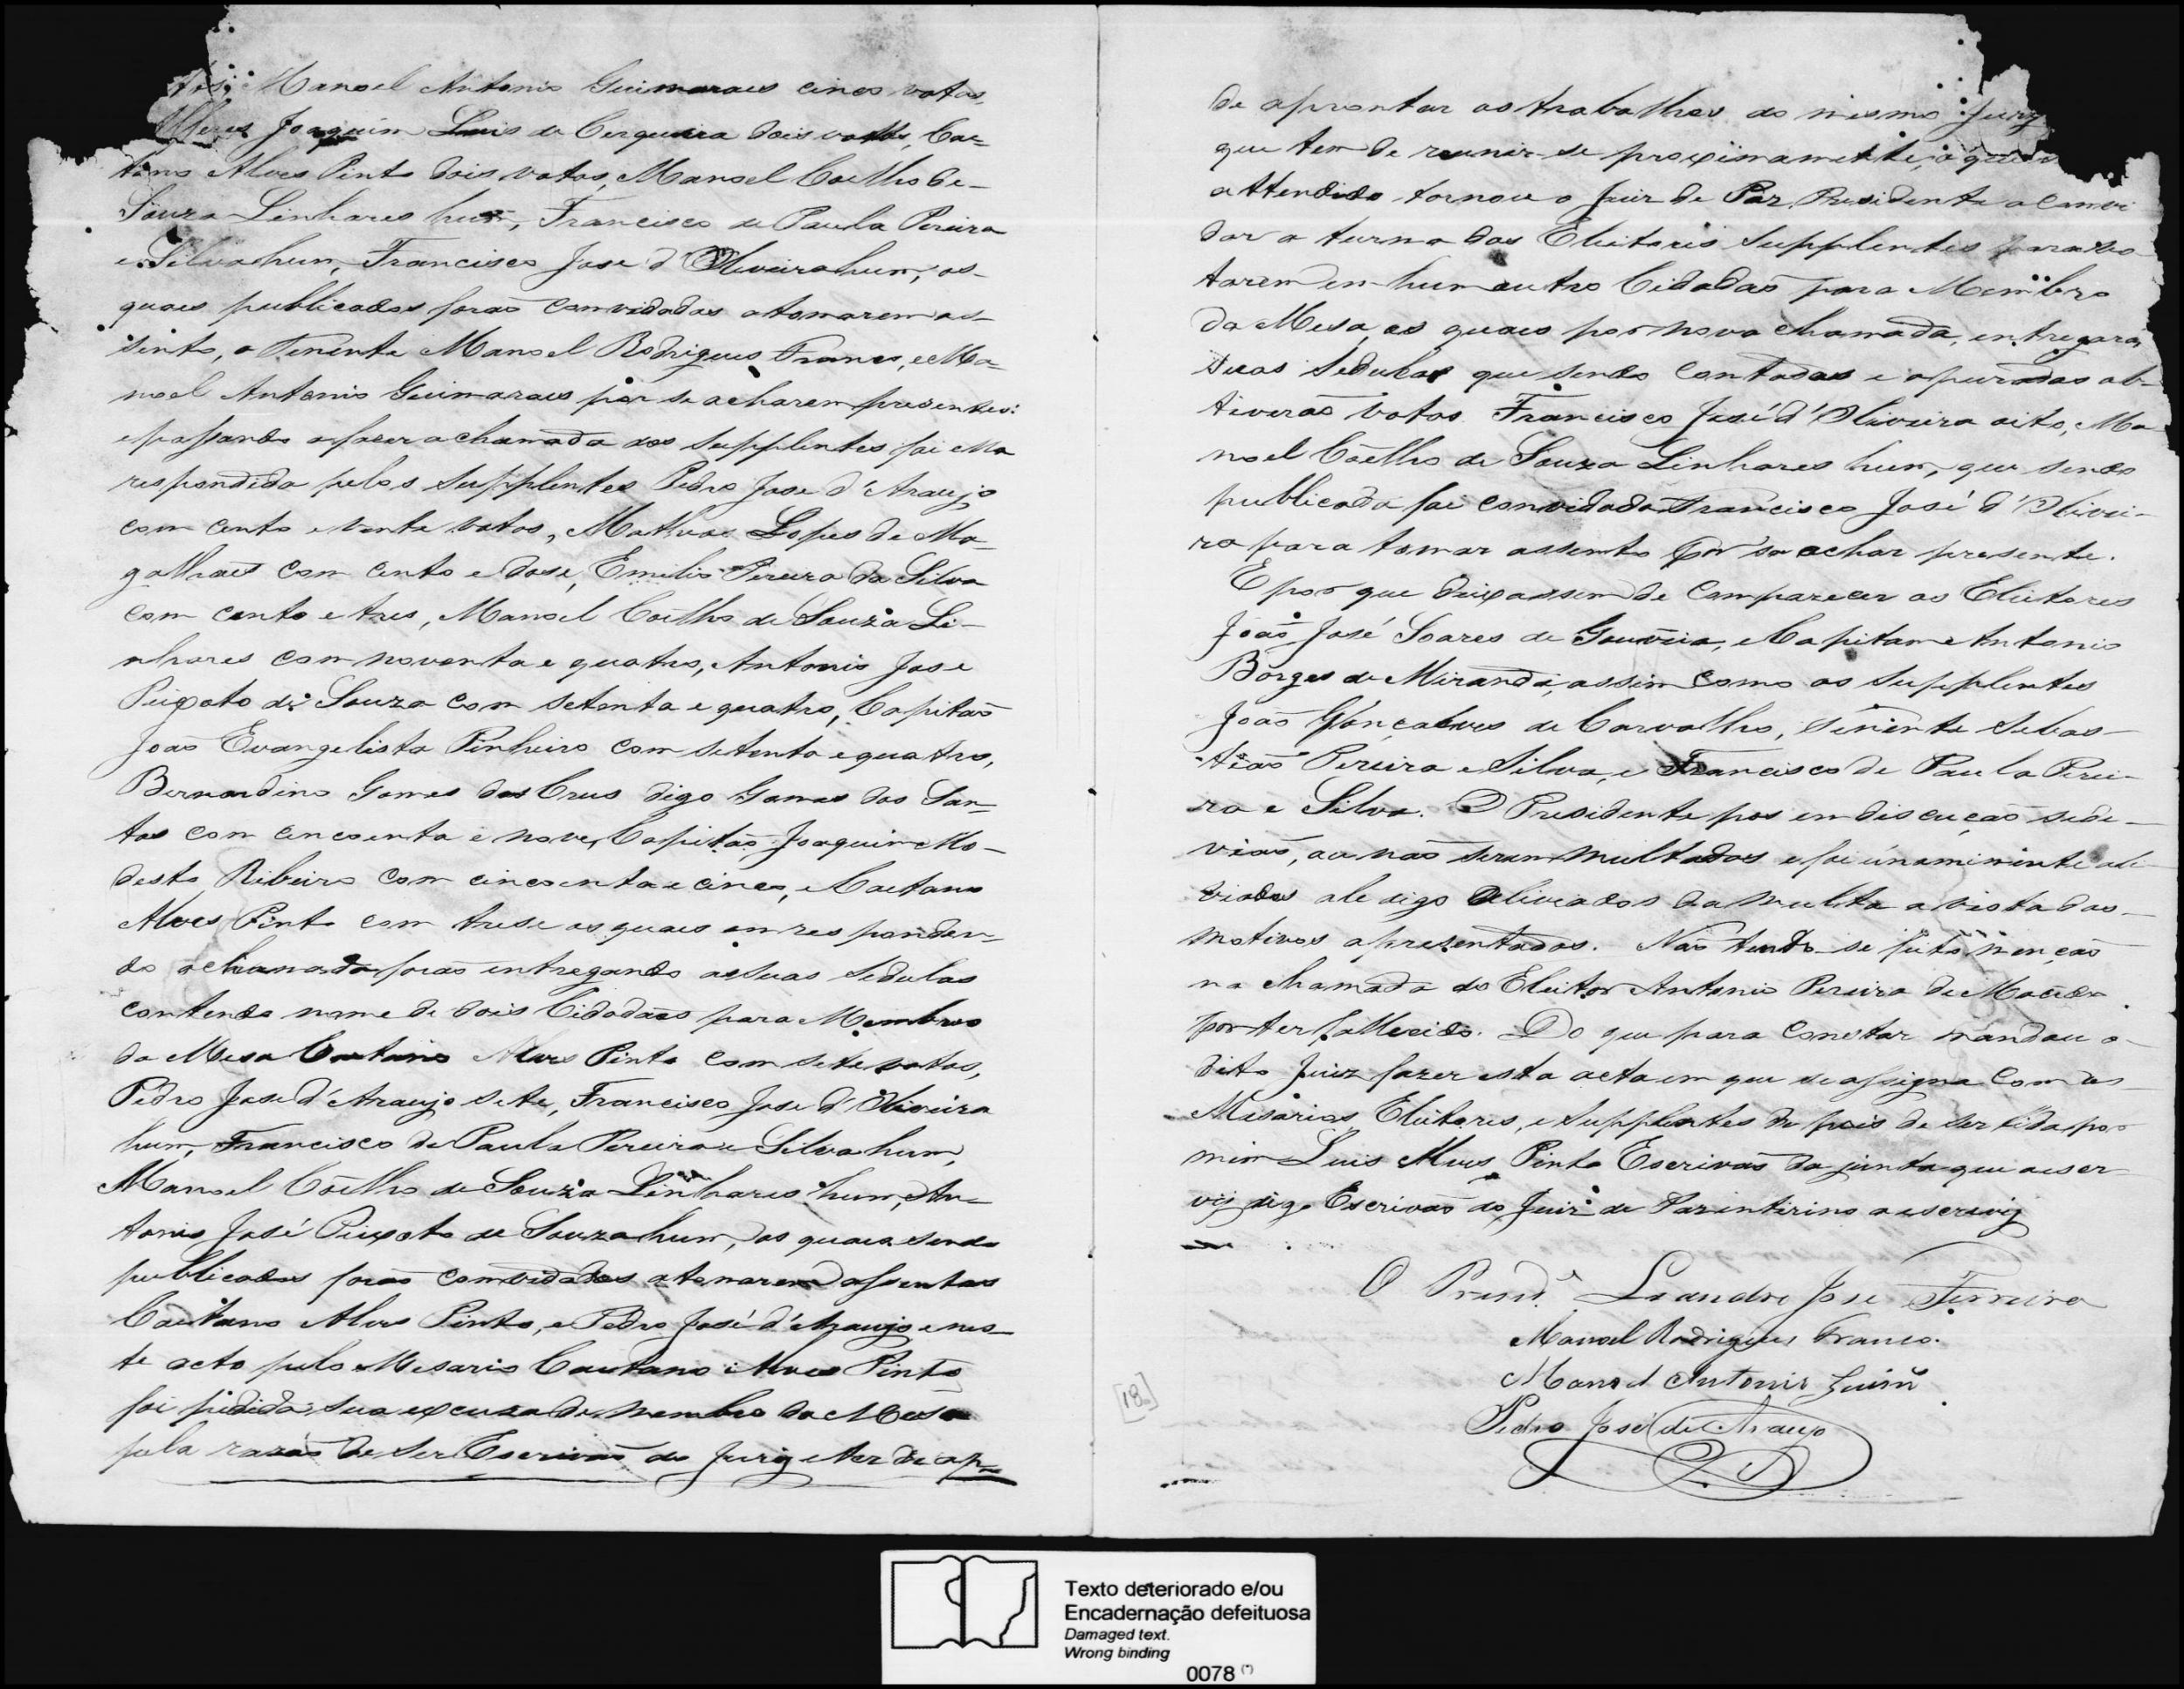 tos, Manoel Antonio Guimaraes cinco votos,
Alferes Joaquim Luis de Cerqueira dois votos, Cae=
tano Alves Pinto dois votos, Manoel Coelho de
Souza Linhares hum, Francisco de Paula Pereira
e Silva hum, Francisco Jose d'Oliveira hum, os
quaes publicados forão comvidados a tomarem as-
sento, o Tenente Manoel Rodrigues Franco, e Ma=
noel Antonio Guimaraes por se acharem presentes:
e passando a fazer a chamada dos supplentes foi ella
respondida pelos supplentes Pedro Jose d'Araujo
com cento e vinte votos, Mathias Lopes de Ma-
galhaes com cento e dose, Emilio Pereira da Silva
com cento e tres, Manoel Coelho de Souza Li-
nhares com noventa e quatro, Antonio Jose
Peixoto de Souza com setenta e quatro, Capitão
João Evangelista Pinheiro com setenta e quatro,
Bernardino Gomes das Crus digo Gomes dos San-
tos com cincoenta e nove, Capitão Joaquim Mo-
desto Ribeiro com cincoenta e cinco, e Caetano
Alves Pinto com trese os quaes em responden-
do a chamada forão entregando as suas sedulas
contendo nome de dois Cidadãos para Membros
da Mesa Caetano Alves Pinto com sete votos,
Pedro Jose d'Araujo sete, Francisco Jose d'Oliveira
hum, Francisco de Paula Pereira e Silva hum,
Manoel Coelho de Souza Linhares hum, An-
tonio José Peixoto de Souza hum, os quaes sendo
publicados forão comvidados a tomarem assentos
Caetano Alves Pinto, e Pedro José d'Araujo e nes-
te acto pelo Mesario Caetano Alves Pinto
foi pedida sua excuza de membro da Mesa
pela razão de ser Escrivão do Jury e ter de ap-
de aprontar os trabalhos do mesmo Jury
que tem de reunir-se proximamente, o que
attendido tornou o Juiz de Paz Presidente a comvi
dar a turma dos Eleitores Supplentes para vo
tarem em hum outro Cidadão para Membro
da Mesa, os quaes por nova chamada, entregarão
suas sedulas que sendo contadas e apuradas ob-
tiverão votos Francisco José d'Oliveira oito, Ma
noel Coêlho de Souza Linhares hum, que sendo
publicado foi comvidado Francisco José d'Olivei-
ra para tomar assento por se achar presente.
E por que deixassem de comparecer os Eleitores
João José Soares de Gouvêia, e Capitam Antonio
Borges de Miranda, assim como os supplentes
João Gonçalves de Carvalho, Tenente Sebas-
tião Pereira e Silva, e Francisco de Paula Perei-
ra e Silva. O Presidente pos em discução se de-
vião, ou não serem multados e foi unamimente ali
viados ale digo aliviados da multa a vista dos
motivos aprezentados. Não tendo-se feito menção
na chamada do Eleitor Antonio Pereira de Macedo
por ter fallecido. Do que para constar mandou o
dito Juiz fazer esta acta em que se assigna com os
Misarios, Eleitores, e supplentes de pois de ser lida por
mim Luis Alves Pinto Escrivão da junta que a escr
vij digo Escrivão do Juiz de Paz intirino a escrevij
O Presid.e Leandro Jose Ferreira
Manoel Rodrigues Franco.
Manoel Antonio Guim
Pedro José de Araujo
[18]
Texto deteriorado e/ou
Encadernação defeituosa
Damaged text.
Wrong binding
0078 (*)